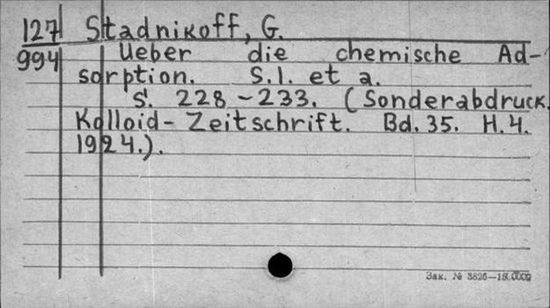 127 Stadnikoff, G.
994 Ueber die chemische Ad-
sorption. S.l. et a.
S. 228-233. (Sonderabdruck.
Kolloid-Zeitschrift. Bd. 35. H.4.
1924.).
Зак. № 3826—150.000